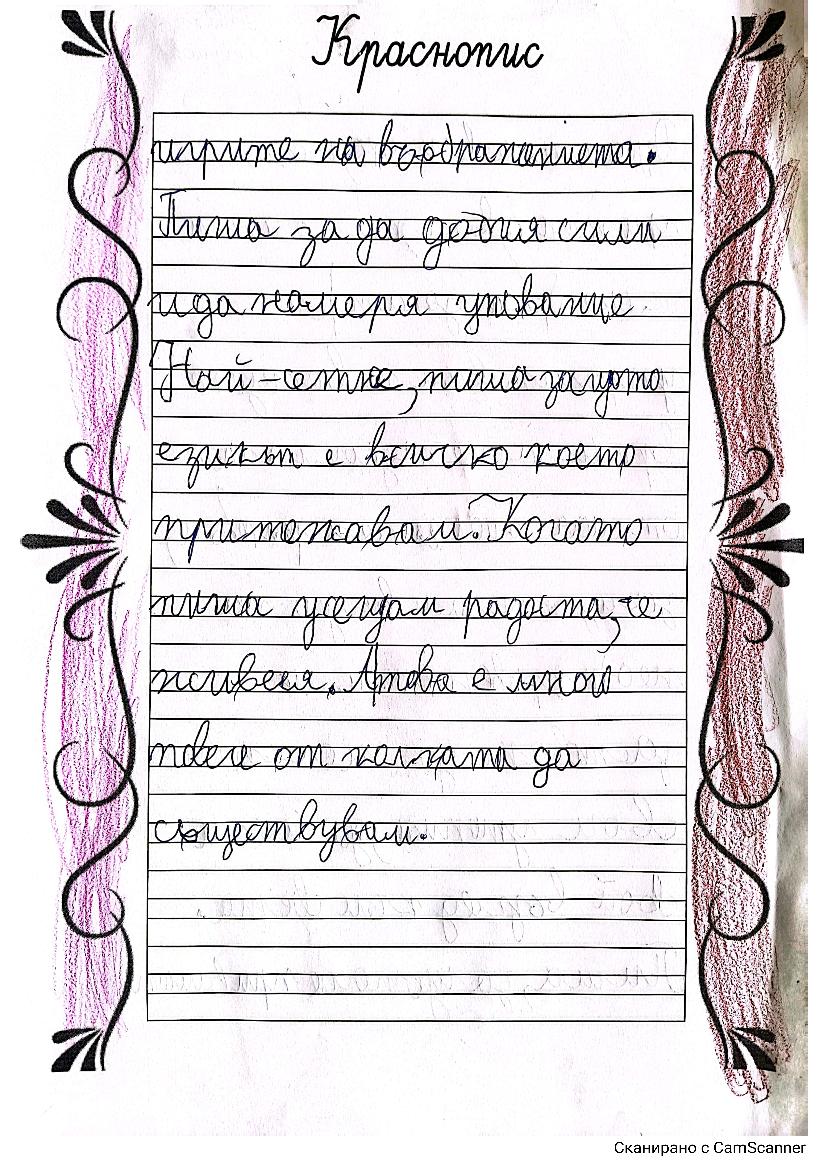 Краснопис
игрите на въображението.
Пиша за да добия сили
и да намеря упование.
Най-сетне, пиша защото
езикът е всичко което
притежавам. Когато
пиша усещам радостта, че
живея. А това е много
повече от колкото да
съществувам.
Сканирано с CamScanner